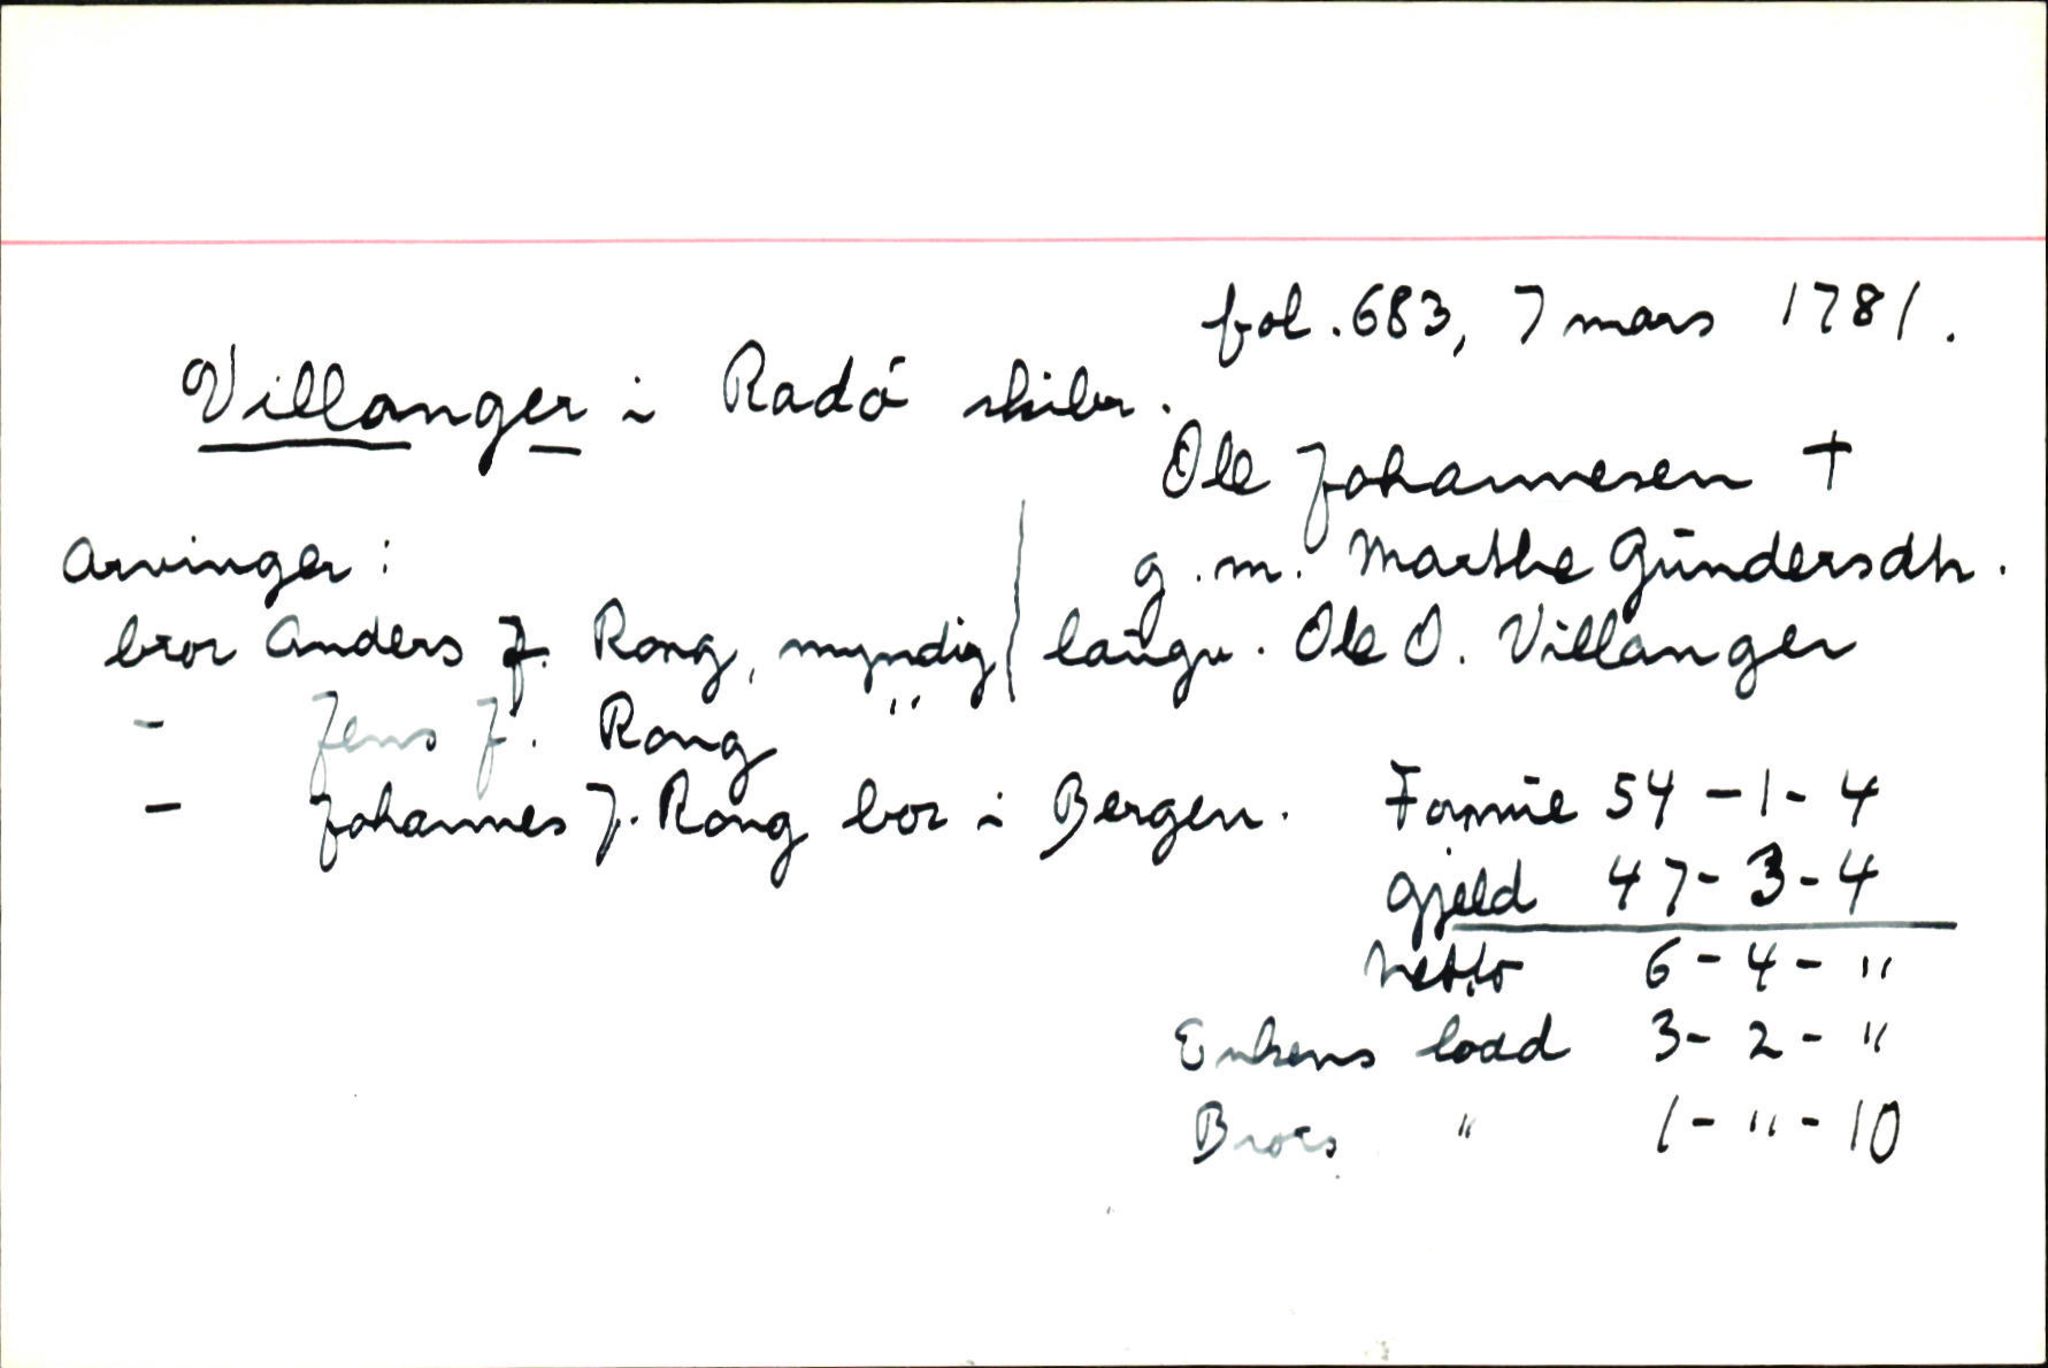 fol. 683, 7 mars 1781.
Villanger i Radö skibr.
Ole Johannesen †
g. m. Marthe Gündersdtr.
laugv. Ole O. Villanger
Arvinger:
bror Anders J. Rong, myndig
- Jens J. Rong "
- Johannes J. Rong bor i Bergen.
Formue 54 - 1 - 4
Gjeld 47 - 3 - 4
Netto 6 - 4 - "
Enkens lodd 3 - 2 - "
Brors " 1 - " - 10